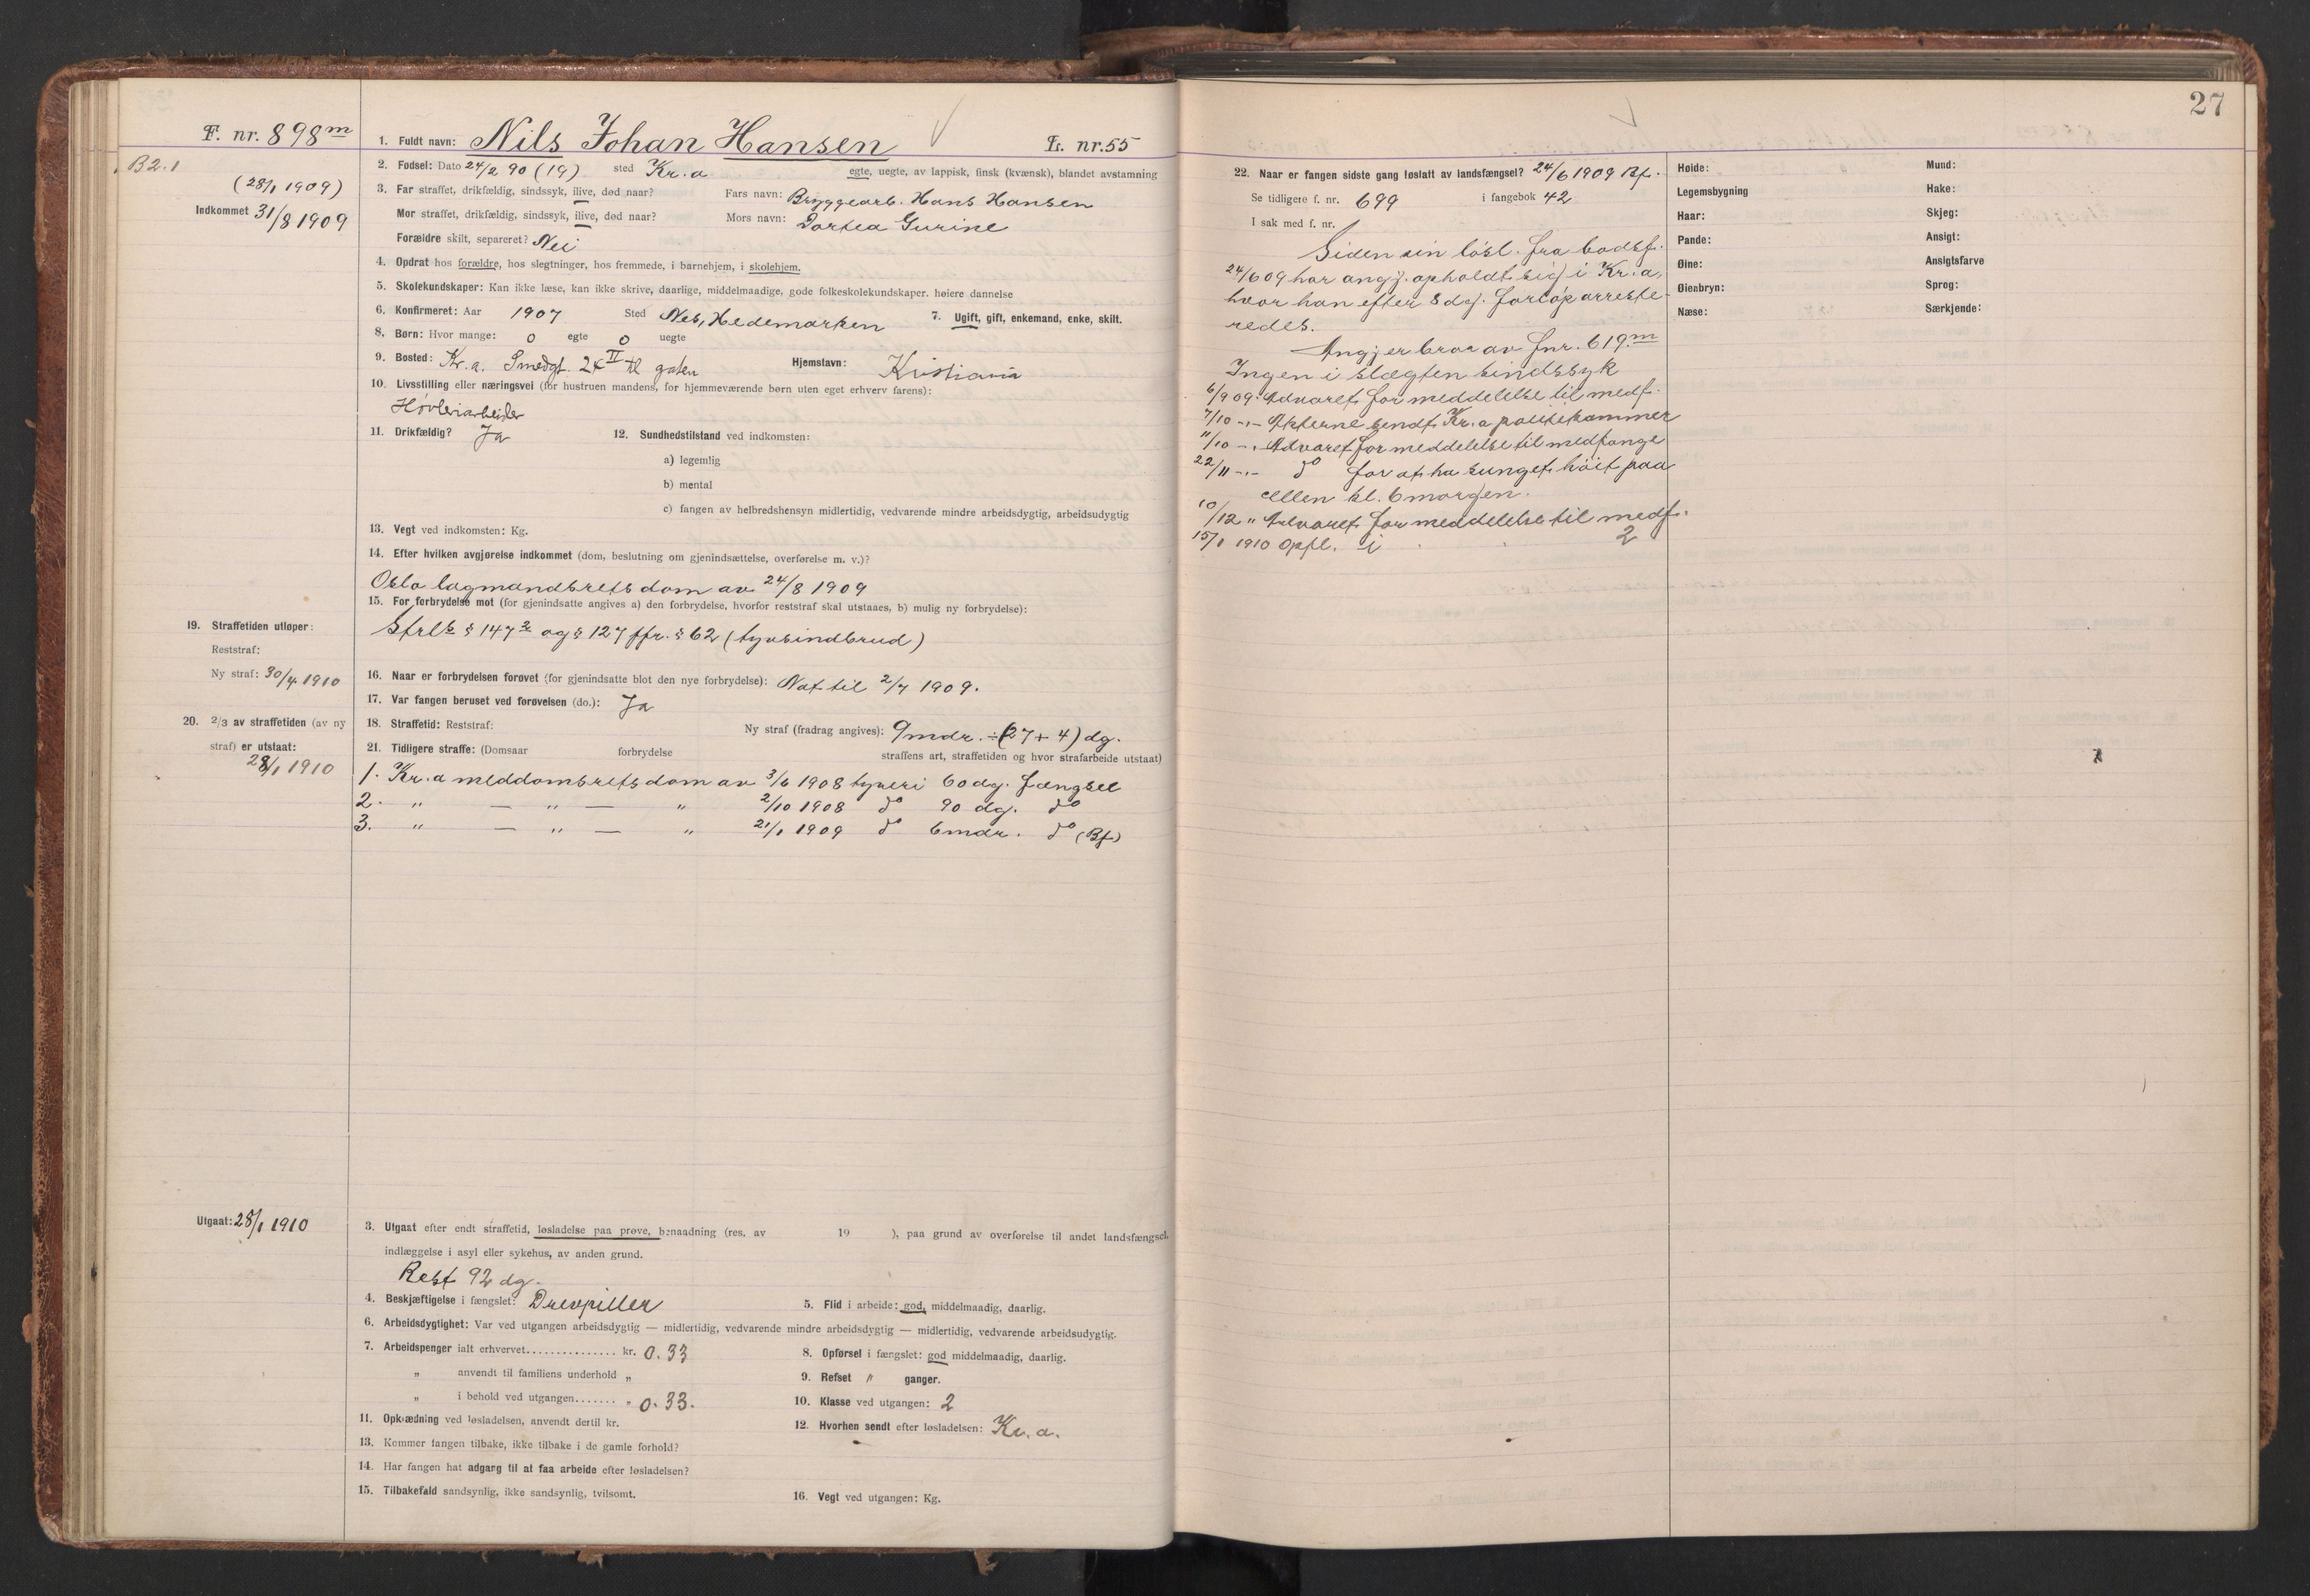 F. nr. 898 m
B2.1
(28/1 1909)
Indkommet 31/8 1909
1. Fuldt navn: Nils Johan Hansen L. nr. 55
2. Fødsel: Dato 24/2 90 (19) sted Kr.a egte, uegte, av lappisk, finsk (kvænsk), blandet avstamning
3. Far straffet, drikfældig, sindssyk, ilive, død naar? Fars navn: Bryggearb. Hans Hansen
Mor straffet, drikfældig, sindssyk, ilive, død naar? Mors navn: Dortea Gurine
Forældre skilt, separeret? Nei
4. Opdrat hos forældre, hos slegtninger, hos fremmede, i barnehjem, i skolehjem.
5. Skolekundskaper: Kan ikke læse, kan ikke skrive, daarlige, middelmaadige, gode folkeskolekundskaper. høiere dannelse
6. Konfirmeret: Aar 1907 Sted Nes, Hedemarken 7. Ugift, gift, enkemand, enke, skilt.
8. Børn: Hvor mange: 0 egte 0 uegte
9. Bosted: Kr.a. Smedgt. 24 II til gaten Hjemstavn: Kristiania
10. Livsstilling eller næringsvei (for hustruen mandens, for hjemmeværende børn uten eget erhverv farens):
Høvleriarbeider
11. Drikfældig? Ja 12. Sundhedstilstand ved indkomsten:
a) legemlig
b) mental
c) fangen av helbredshensyn midlertidig, vedvarende mindre arbeidsdygtig, arbeidsudygtig
13. Vegt ved indkomsten: Kg.
14. Efter hvilken avgjørelse indkommet (dom, beslutning om gjenindsættelse, overførelse m. v.)?
Oslo lagmandsrets dom av 24/8 1909
15. For forbrydelse mot (for gjenindsatte angives a) den forbrydelse, hvorfor reststraf skal utstaaes, b) mulig ny forbrydelse):
Strl.s § 147 2 og § 127 jfr. § 62 (tyvsindbrud)
19. Straffetiden utløper:
Reststraf:
Ny straf: 30/4 1910
16. Naar er forbrydelsen forøvet (for gjenindsatte blot den nye forbrydelse): Nat til 2/7 1909.
17. Var fangen beruset ved forøvelsen (do.): Ja
20. 2/3 av straffetiden (av ny
straf) er utstaat:
28/1 1910
18. Straffetid: Reststraf: Ny straf (fradrag angives): 9 mdr. ÷ (27 + 4) dg.
21. Tidligere straffe: (Domsaar forbrydelse straffens art, straffetiden og hvor strafarbeide utstaat)
1. Kr.a meddomsrets dom av 3/6 1908 tyveri 60 dg. fængsel
2. " — " — " 2/10 1908 do 90 dg. do
3. " — " — " 21/1 1909 do 6 mdr. do (Bf)
Utgaat: 28/1 1910
3. Utgaat efter endt straffetid, løsladelse paa prøve, benaadning (res. av 19 ), paa grund av overførelse til andet landsfængsel,
indlæggelse i asyl eller sykehus, av anden grund.
Rest 92 dg.
4. Beskjæftigelse i fængslet: Drevpiller 5. Flid i arbeide: god, middelmaadig, daarlig.
6. Arbeidsdygtighet: Var ved utgangen arbeidsdygtig — midlertidig, vedvarende mindre arbeidsdygtig — midlertidig, vedvarende arbeidsudygtig.
7. Arbeidspenger ialt erhvervet............... kr. 0.33 8. Opførsel i fængslet: god middelmaadig, daarlig.
„ anvendt til familiens underhold „ 9. Refset " ganger.
„ i behold ved utgangen....... „ 0.33. 10. Klasse ved utgangen: 2
11. Opklædning ved løsladelsen, anvendt dertil kr. 12. Hvorhen sendt efter løsladelsen: Kr.a.
13. Kommer fangen tilbake, ikke tilbake i de gamle forhold?
14. Har fangen hat adgang til at faa arbeide efter løsladelsen?
15. Tilbakefald sandsynlig, ikke sandsynlig, tvilsomt. 16. Vegt ved utgangen: Kg.
27
22. Naar er fangen sidste gang løslatt av landsfængsel? 24/6 1909 Bf.
Se tidligere f. nr. 699 i fangebok 42
I sak med f. nr.
Siden sin løsl. fra bodsf.
24/6 09 har angj. opholdt sig i Kr.a,
hvor han efter 8 dg. forløp arreste-
redes.
Angj er bror av fnr. 619 m
Ingen i slægten sindssyk
6/9 09. Advaret for meddelelse til medf.
7/10 -"- Akterne sendt Kr.a politikammer
11/10 -"- Advaret for meddelelse til medfange
22/11 -"- do for at ha sunget høit paa
cellen kl. 6 morgen.
10/12 " Advaret for meddelelse til medf.
15/1 1910 Opfl. i 2
Høide:
Legemsbygning
Haar:
Pande:
Øine:
Øienbryn:
Næse:
Mund:
Hake:
Skjeg:
Ansigt:
Ansigtsfarve
Sprog:
Særkjende: